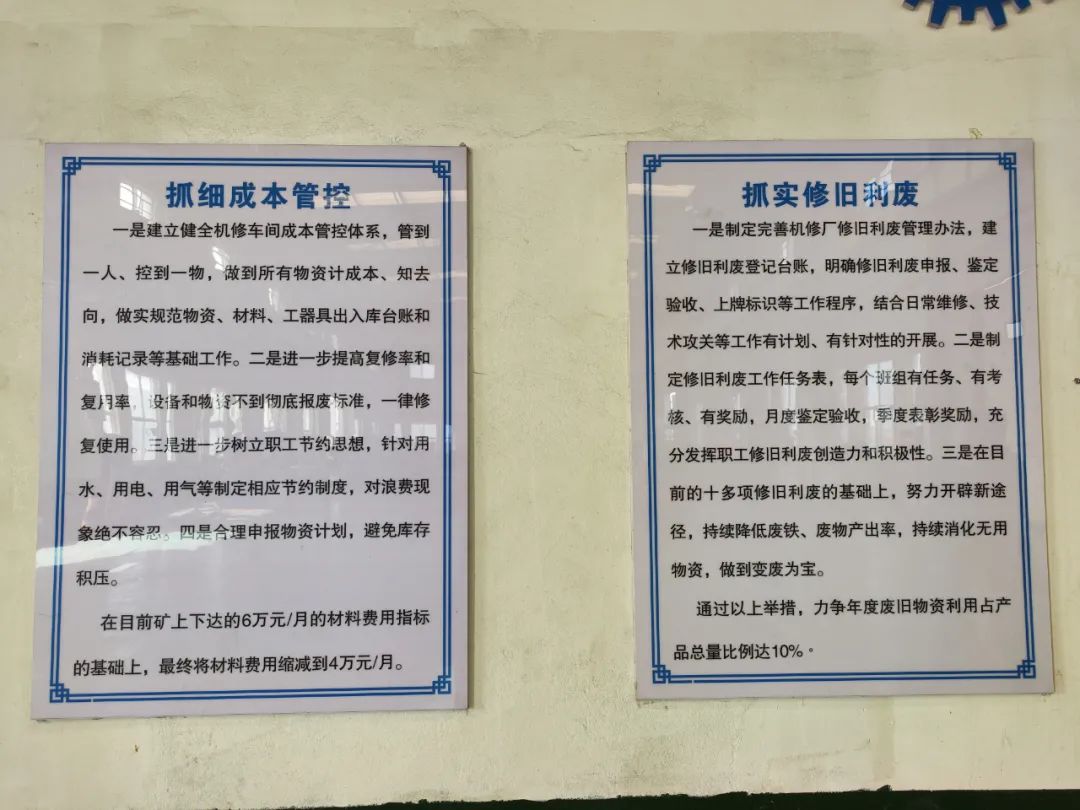 抓细成本管控
一是建立健全机修车间成本管控体系，管到
一人、控到一物，做到所有物资计成本、知去
向，做实规范物资、材料、工器具出入库台账和
消耗记录等基础工作。二是进一步提高复修率和
复用率，设备和物资不到彻底报废标准，一律修
复使用。三是进一步树立职工节约思想，针对用
水、用电、用气等制定相应节约制度，对浪费现
象绝不容忍。四是合理申报物资计划，避免库存
积压。
在目前矿上下达的6万元/月的材料费用指标
的基础上，最终将材料费用缩减到4万元/月。
抓实修旧利废
一是制定完善机修厂修旧利废管理办法，建
立修旧利废登记台账，明确修旧利废申报、鉴定
验收、上牌标识等工作程序，结合日常维修、技
术攻关等工作有计划、有针对性的开展。二是制
定修旧利废工作任务表，每个班组有任务、有考
核、有奖励，月度鉴定验收，季度表彰奖励，充
分发挥职工修旧利废创造力和积极性。三是在目
前的十多项修旧利废的基础上，努力开辟新途
径，持续降低废铁、废物产出率，持续消化无用
物资，做到变废为宝。
通过以上举措，力争年度废旧物资利用占产
品总量比例达10%。